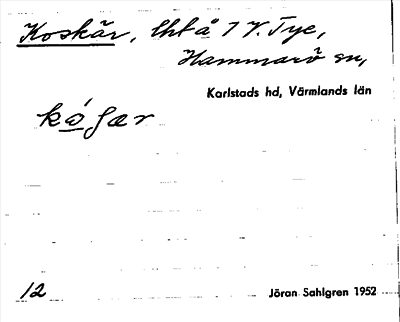 Koskär, lht å 7 V. Tye,
Hammarö sn,
Karlstads hd, Värmlands län
12
Jöran Sahlgren 1952